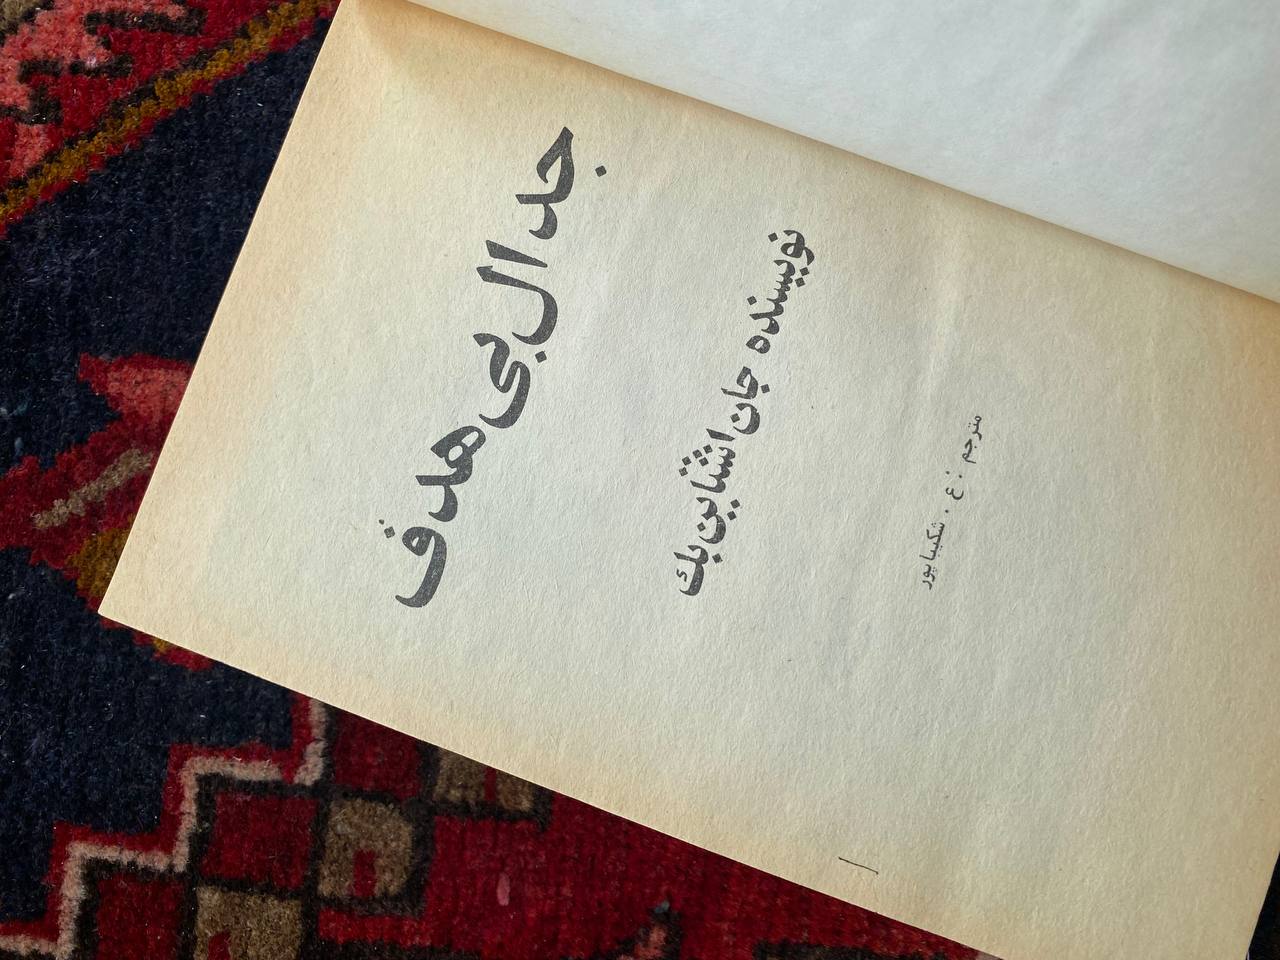 جدال بی هدف
نویسنده جان اشتاین بك
مترجم : ع . شکیبا پور